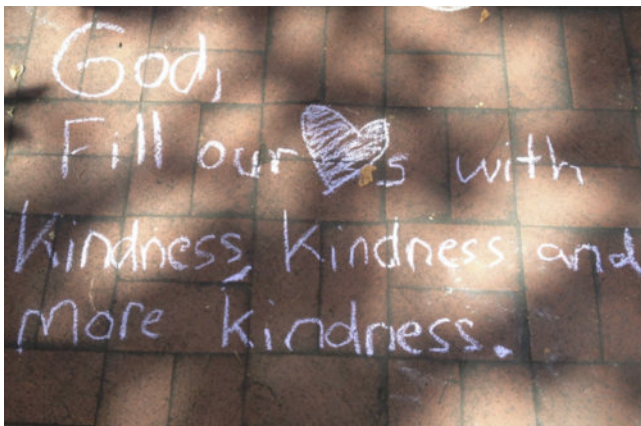 God,
Fill our ♥s with
Kindness, Kindness and
more kindness.